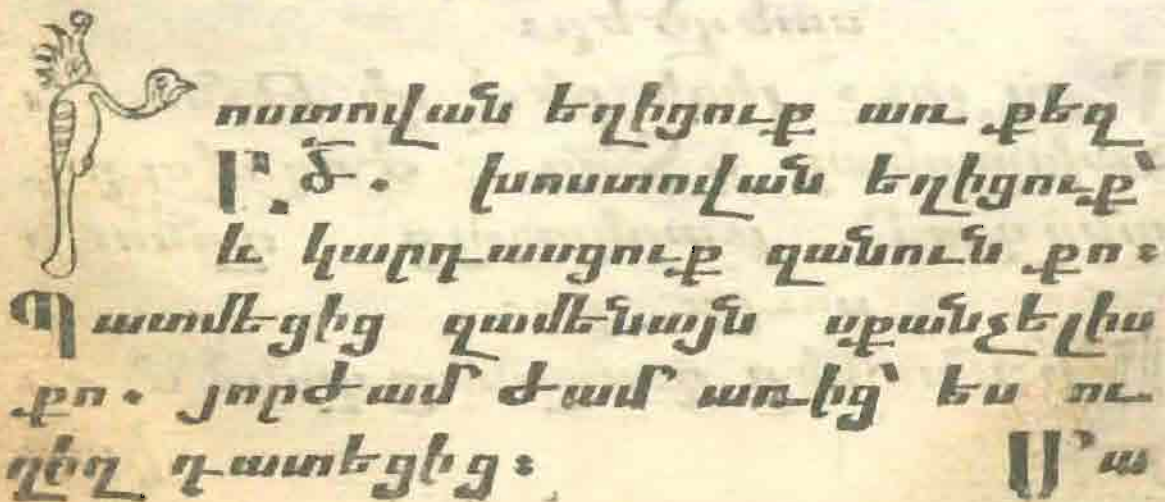 Խոստովան եղիցուք առ քեզ
Ած. խոստովան եղիցուք՝
և կարդասցուք զանուն քո։
Պատմեցից զամենայն սքանչելիս
քո. յորժամ ժամ առից՝ ես ու
ղիղ դատեցից։ Մա